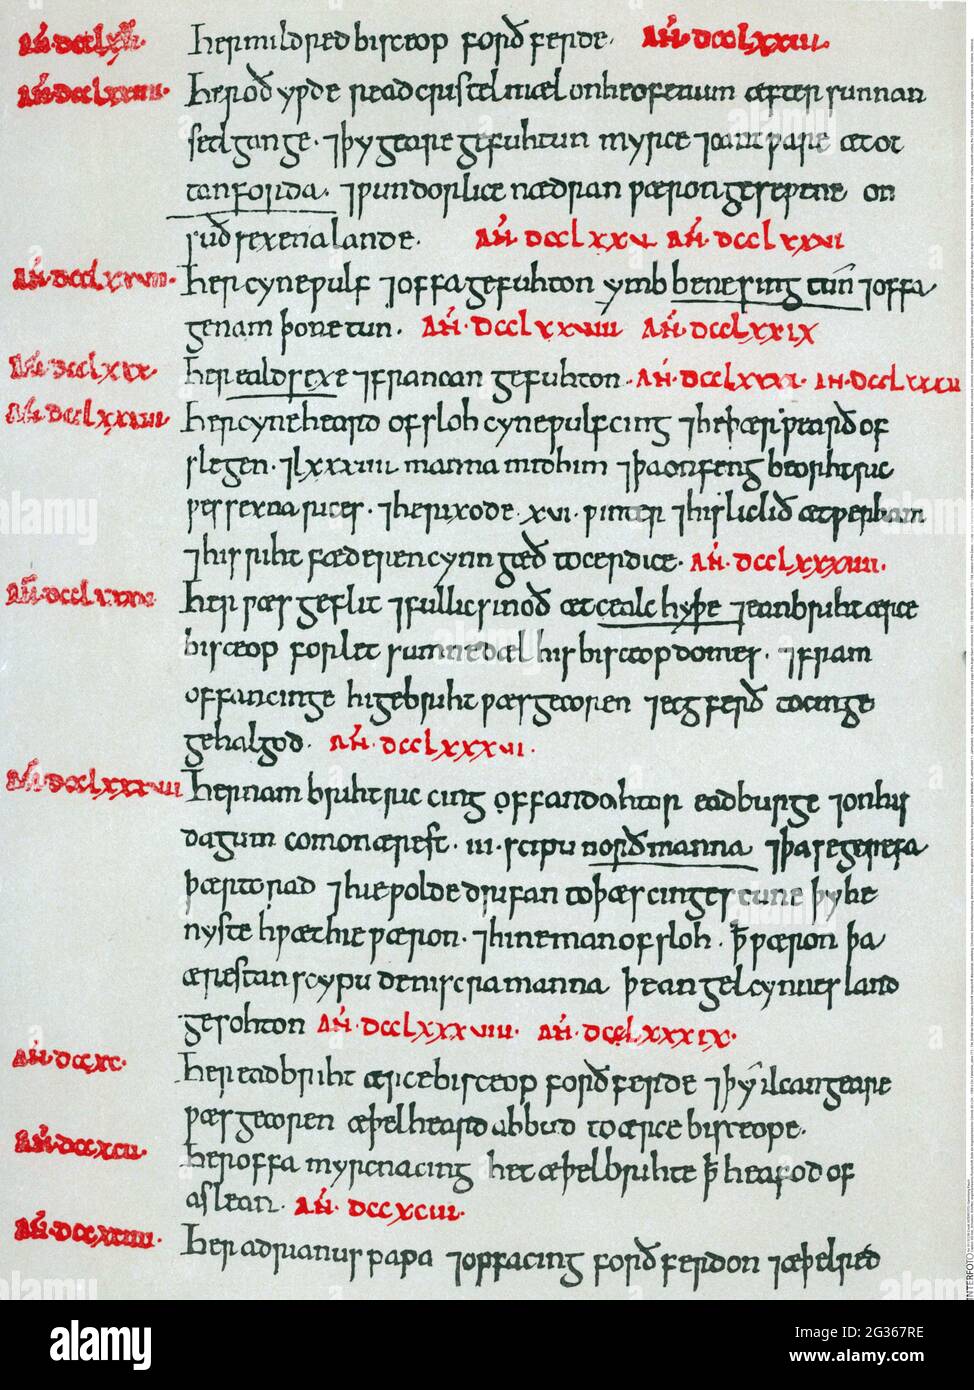 AÑ·DCCLXXII· her mildred bisceop forðferde· AÑ·DCCLXXIII·
AÑ·DCCLXXIIII· her oðyƿde read cristel mæl on heofenum æfter sunnan
setlgange· ⁊ þy geare gefuhtun myrce ⁊ cantƿare æt ot
tanforda· ⁊ ƿundorlice nædran ƿæron geseƿene on
suðsexena lande· AÑ·DCCLXXV· AÑ·DCCLXXVI
AÑ·DCCLXXVII· her cyneƿulf ⁊ offa gefuhton ymb benesing tun ⁊ offa
genam þone tun· AÑ·DCCLXXVIII AÑ·DCCLXXIX
AÑ·DCCLXXX her ealdsexe ⁊ francan gefuhton· AÑ·DCCLXXXI· AÑ·DCCLXXXII
AÑ·DCCLXXXIII her cyneheard ofsloh cyneƿulf cing ⁊ he þær ƿearð of
slegen· ⁊ LXXXIIII manna mid him ⁊ þa onfeng beorhtric
ƿessexna rices· ⁊ he rixode· XVI· ƿinter ⁊ his lic lið æt ƿerham
⁊ his riht fæderen cynn gæð to cerdice· AÑ·DCCLXXXIIII·
her ƿæs geflit fullic sinoð æt cealchyþe ⁊ eanbriht ærce
bisceop forlet sumne dæl his bisceopdomes· ⁊ fram
offan cinge higebriht ƿæs gecoren ⁊ ecgferð to cinge
gehalgod· AÑ·DCCLXXXVI·
AÑ·DCCLXXXVII her nam brihtric cing offan dohtor eadburge ⁊ on his
dagum comon ærest· III· scipu norðmanna ⁊ þa se gerefa
þærto rad ⁊ hi ƿolde drifan to þæs cinges tune þy he
nyste hƿæt hi ƿæron· ⁊ hine man ofsloh· þ̄ ƿæron þa
ærestan scypu deniscra manna þe angelcynnes land
gesohton AÑ·DCCLXXXVIII· AÑ·DCCLXXXIX·
AÑ·DCCXC· her eadbriht ærcebisceop forðferde ⁊ þy ilcan geare
ƿæs gecoren æþelheard abbud to ærcebisceope·
AÑ·DCCXCII· her offa myrcna cing het æþelbrihte þ̄ heafod of
aslean· AÑ·DCCXCIII·
AÑ·DCCXCIIII· her adrianus papa ⁊ offa cing forðferdon ⁊ æþelred
alamy
INTERFOTO
Image ID: 2G367RE
www.alamy.com